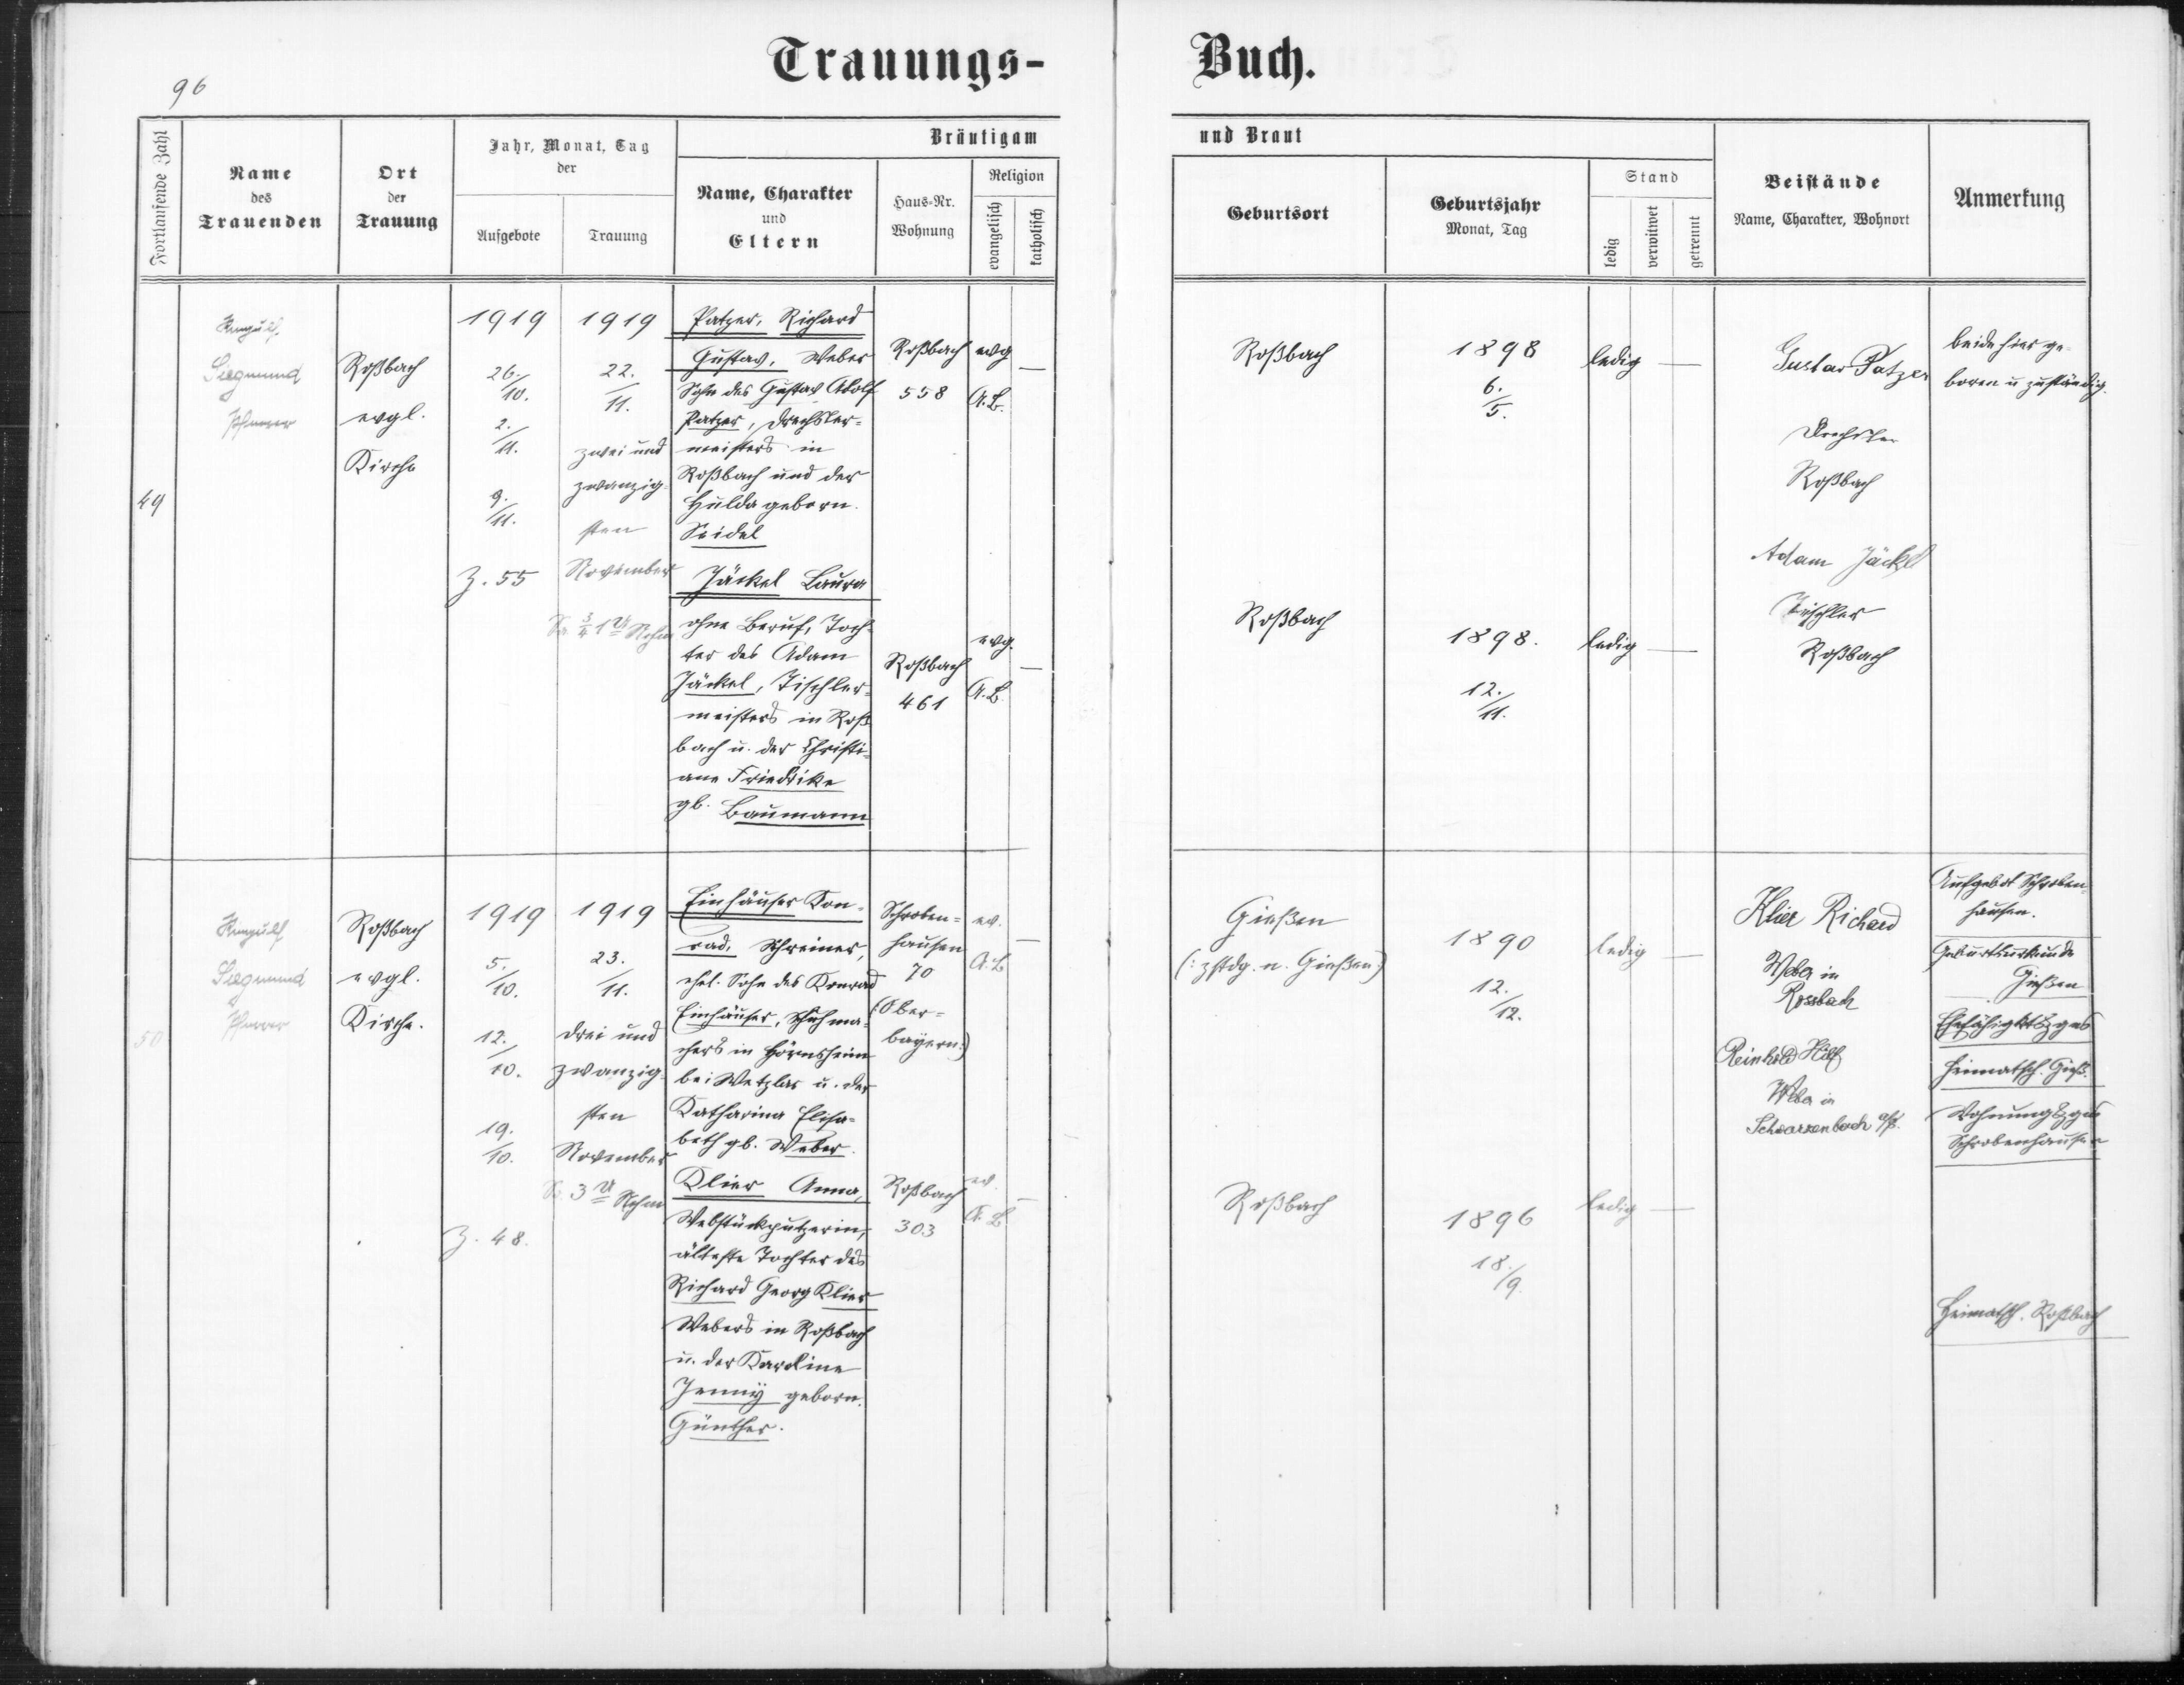 96
Trauungs-
Buch.
Fortlaufende Zahl
Name
des
Trauenden
Ort
der
Trauung
Jahr, Monat, Tag
der
Aufgebote
Trauung
Bräutigam
Name, Charakter
und
Eltern
Haus-Nr.
Wohnung
Religion
evangelisch
katholisch
und Braut
Geburtsort
Geburtsjahr
Monat, Tag
Stand
ledig
verwitwet
getrennt
Beistände
Name, Charakter, Wohnort
Anmerkung
49
Siegmund
Pfarrer
Roßbach
evgl.
Kirche
1919
26./10.
2./11.
9./11.
Z. 55
1919
22./11.
zwei und
zwanzig-
sten
November
3/4 1 U Nchm
Patzer, Richard
Gustav, Weber
Sohn des Gustav Adolf
Patzer, Drechsler-
meisters in
Roßbach und der
Hulda geborn.
Seidel
Jäckel Laura
ohne Beruf, Toch-
ter des Adam
Jäckel, Tischler-
meisters in Roß-
bach u. der Christi-
ane Friedrike
gb. Baumann
Roßbach
558
Roßbach
461
evg
A.B.
—
evg.
A.B.
—
Roßbach
1898
6./5.
ledig —
Roßbach
1898.
12./11.
ledig —
Gustav Patzer
Drechsler
Roßbach
Adam Jäckel
Tischler
Roßbach
beide hier ge-
boren u zuständig.
50
Siegmund
Pfarrer
Roßbach
evgl.
Kirche.
1919
5./10.
12./10.
19./10.
Z. 48.
1919
23./11.
drei und
zwanzig-
sten
November
3 U Nchm
Einhäuser Kon-
rad, Schreiner,
ehel. Sohn des Konrad
Einhäuser, Schuhma-
chers in Hörnsheim
bei Wetzlar u. der
Katharina Elisa-
beth gb. Weber.
Klier Anna,
Webstückputzerin,
älteste Tochter des
Richard Georg Klier
Webers in Roßbach
u. der Karoline
Jenny geborn.
Günther.
Schroben-
hausen
70
(:Ober-
bayern:)
Roßbach
303
ev.
A.B.
—
ev.
A.B.
—
Gießen
(: zstdg. n. Gießen:)
1890
12./12.
ledig —
Roßbach
1896
18./9.
ledig —
Klier Richard
Weber in
Rossbach
Reinhold Hilf
Weber in
Schwarzenbach a/S.
Aufgebot Schroben-
hausen.
Geburtsurkunde
Gießen
Ehefähigktszgnis
Heimatsch. Gieß.
Wohnungszgnis
Schrobenhausen
Heimatsch. Roßbach